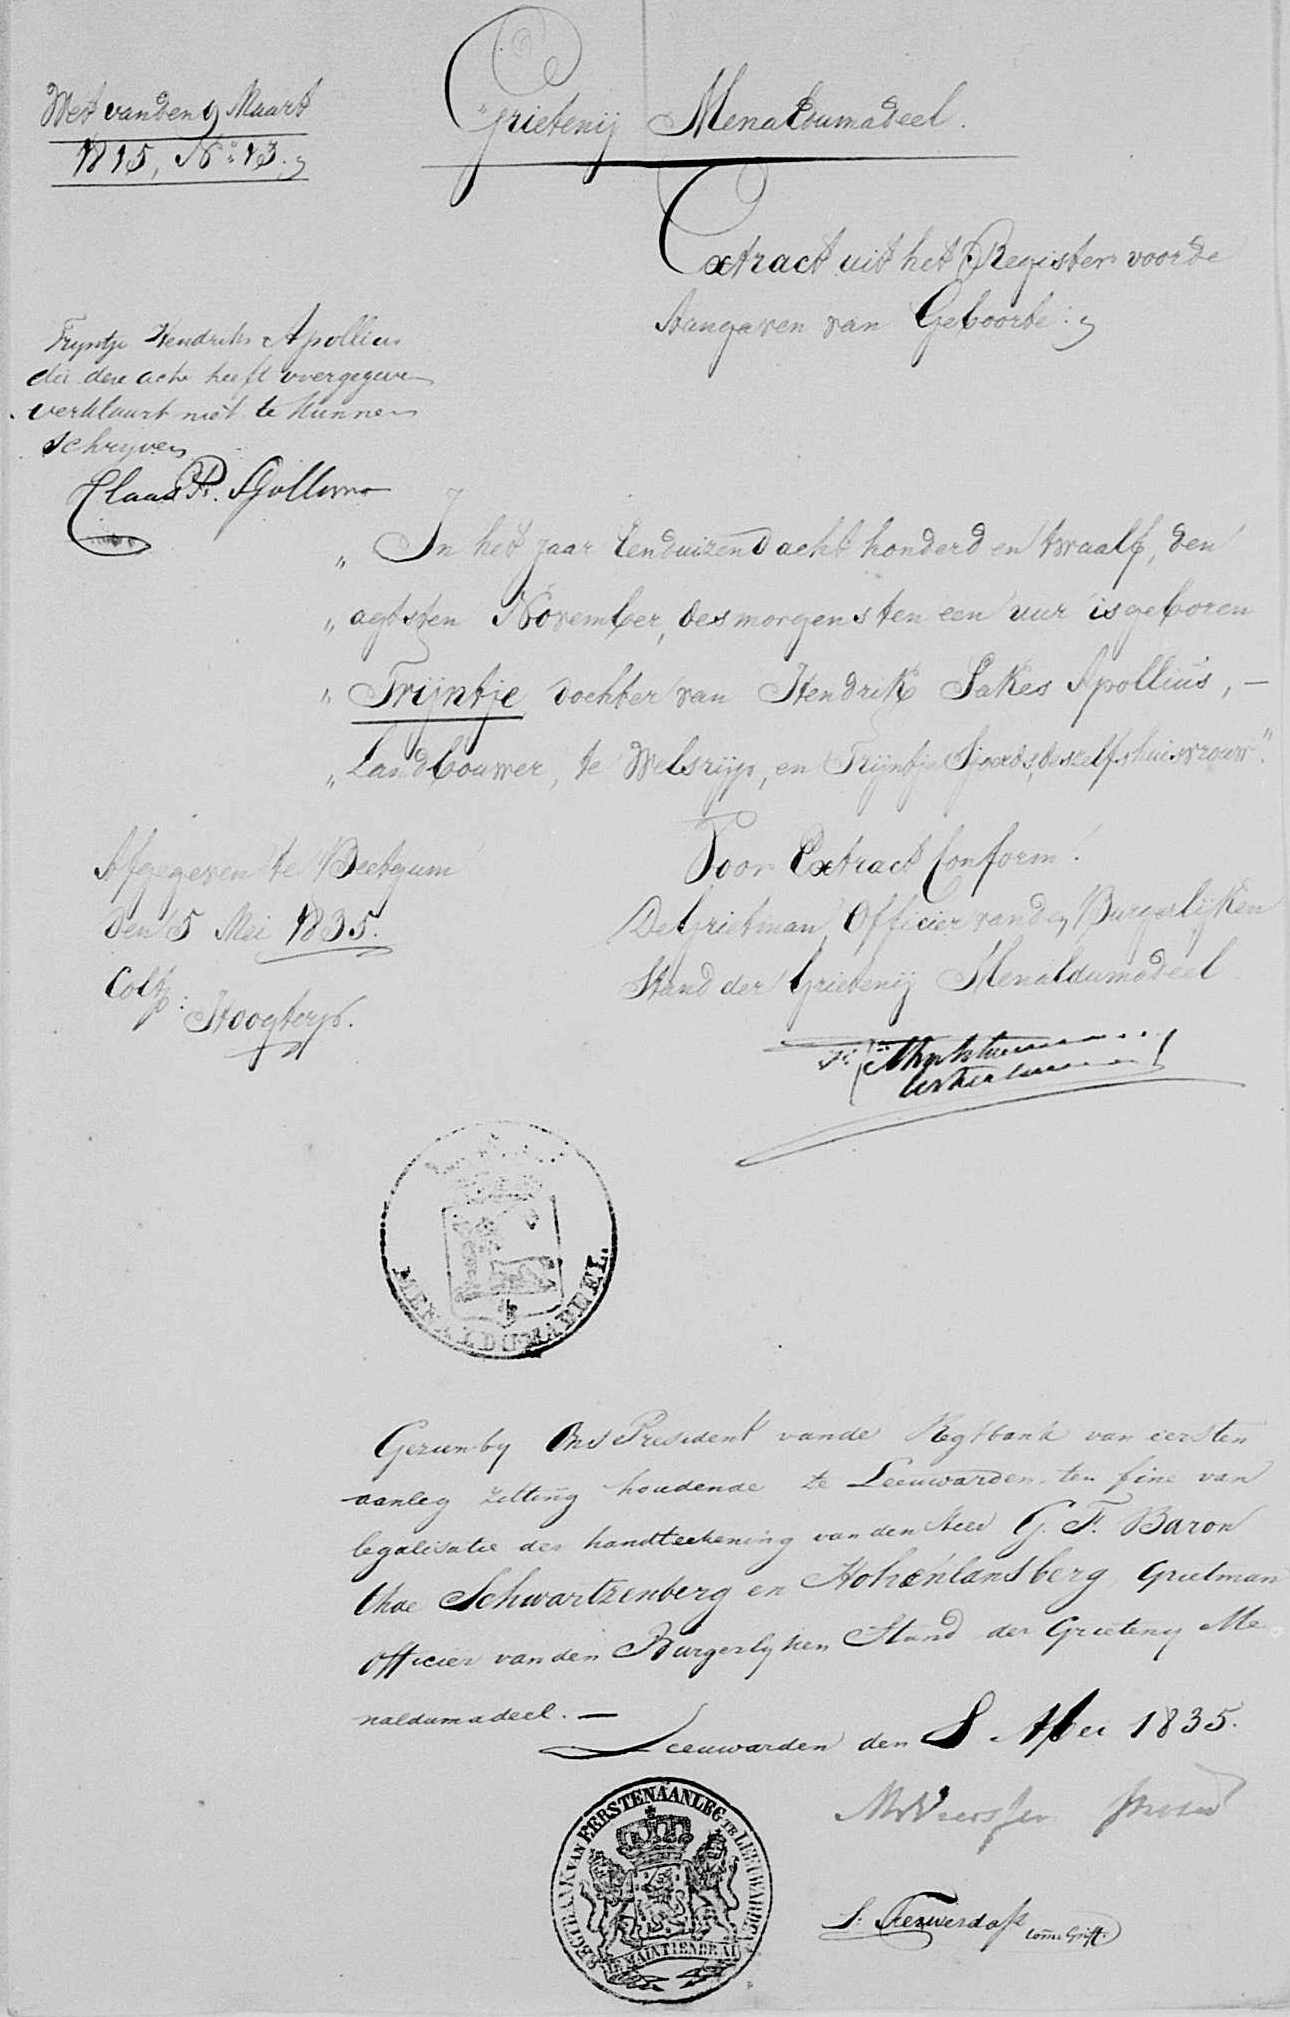 Wet van den 9 Maart
1815, No: 13.
Grietenij Menaldumadeel.
Extract uit het Register voor de
Aangaven van Geboorte.
Tryntje Hendriks Apollius
die deze acte heeft overgegeven
verklaart niet te kunnen
schryven
Claas P.
„ In het jaar Eenduizend acht honderd en twaalf, den
„ agtsten November, des morgens ten een uur is geboren
„ Trijntje dochter van Hendrik Sakes Apollius, —
„ Landbouwer, te Welsrijp, en Trijntje Sjoerds, deszelfs huisvrouw."
Afgegeven te Beetgum
den 5 Mei 1835.
Coll:
Hoogterp.
Voor Extract Conform.
De Grietman, Officier van den Burgerlijken
Stand der Grietenij Menaldumadeel
MENALDUMADEEL.
Gezien by Ons President van de Regtbank van eersten
aanleg zitting houdende te Leeuwarden ten fine van
legalisatie der handteekening van den Heer G. F. Baron
thoe Schwartzenberg en Hohenlansberg Grietman
Officier van den Burgerlyken Stand der Grieteny Me
naldumadeel. —
Leeuwarden den 8 Mei 1835.
REGTBANK VAN EERSTEN AANLEG TE LEEUWARDEN
JE MAINTIENDRAI
S. Ferwerda
Comm. Griff.